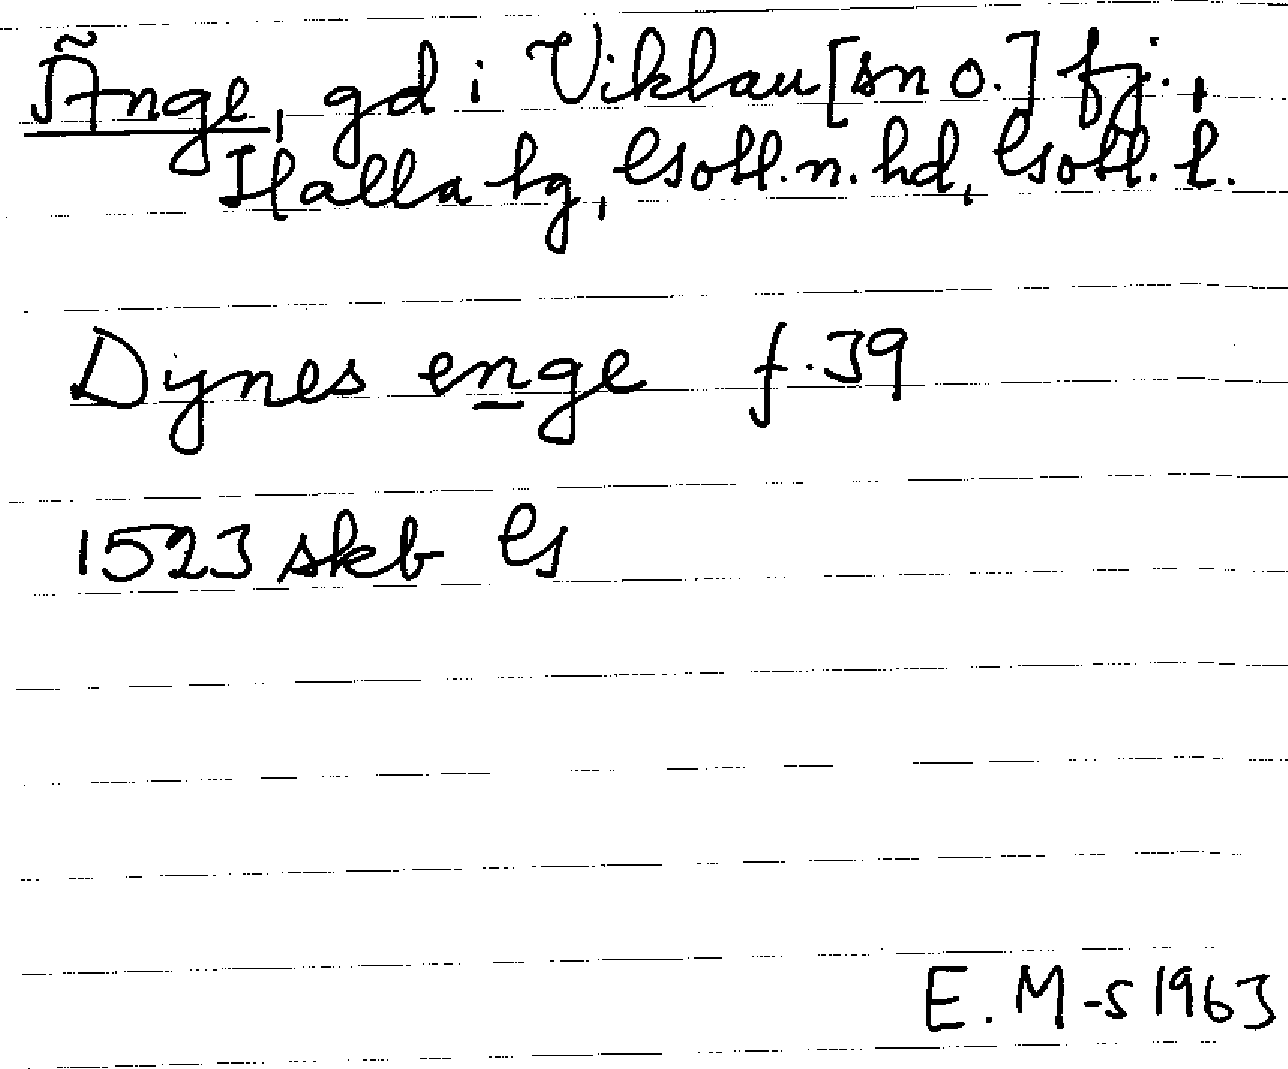 Änge, gd i Viklau [sn o.] fj.,
Halla tg, Gotl. n. hd, Gotl. l.
Dynes enge f. 39
1523 skb G
E. M-s 1963